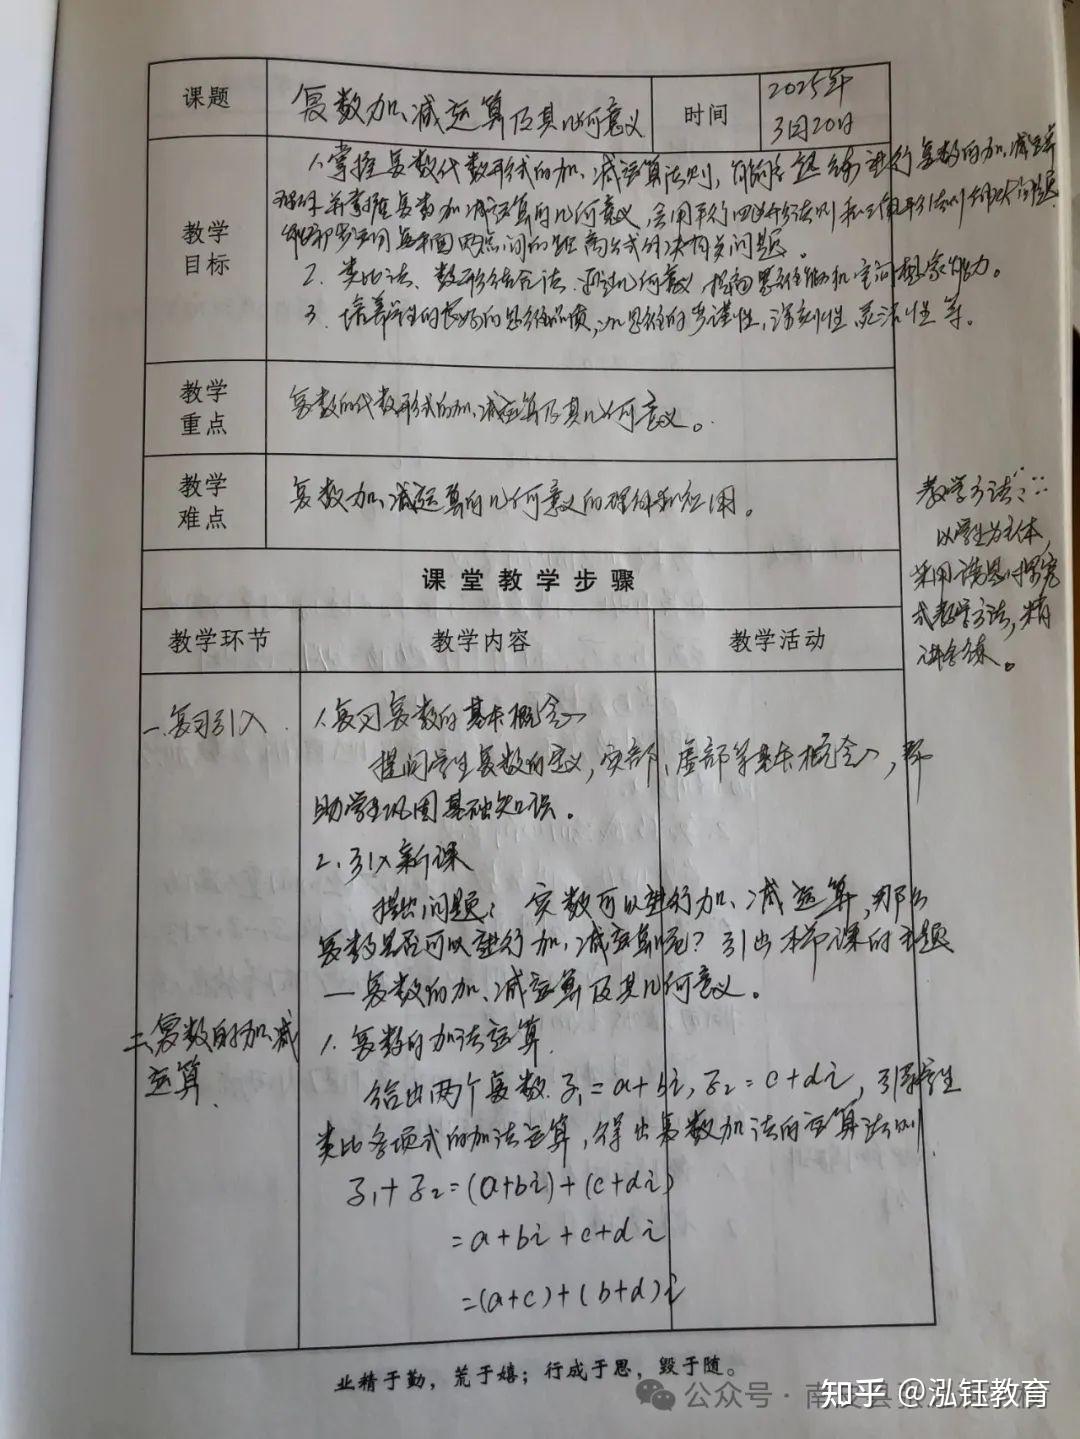 课题 复数加、减运算及其几何意义 时间 2025年
3月20日
教学目标
1、掌握复数代数形式的加、减运算法则,能够熟练进行复数的加、减运算
理解并掌握复数加减运算的几何意义,会用平行四边形法则和三角形法则解决问题
能初步运用复平面两点间的距离公式解决相关问题。
2、类比法、数形结合法、通过几何意义,提高思维能力和空间想象能力。
3、培养学生的良好的思维品质,如思维的严谨性,深刻性,灵活性等。
教学重点
复数的代数形式的加、减运算及其几何意义。
教学难点
复数加、减运算的几何意义的理解和应用。
教学方法:
以学生为主体,
采用诱思探究
式教学方法,精
讲多练。
课堂教学步骤
教学环节 教学内容 教学活动
一、复习引入
1、复习复数的基本概念
提问学生复数的定义,实部、虚部等基本概念,帮
助学生巩固基础知识。
2、引入新课
提出问题:实数可以进行加、减运算,那么
复数是否可以进行加、减运算呢?引出本节课的主题
—复数的加、减运算及其几何意义。
二、复数的加、减
运算.
1、复数的加法运算.
给出两个复数 z₁=a+bi, z₂=c+di, 引导学生
类比多项式的加法运算,得出复数加法的运算法则.
z₁+z₂=(a+bi)+(c+di)
=a+bi+c+di
=(a+c)+(b+d)i
业精于勤,荒于嬉;行成于思,毁于随。
公众号·南皮县
知乎 @泓钰教育